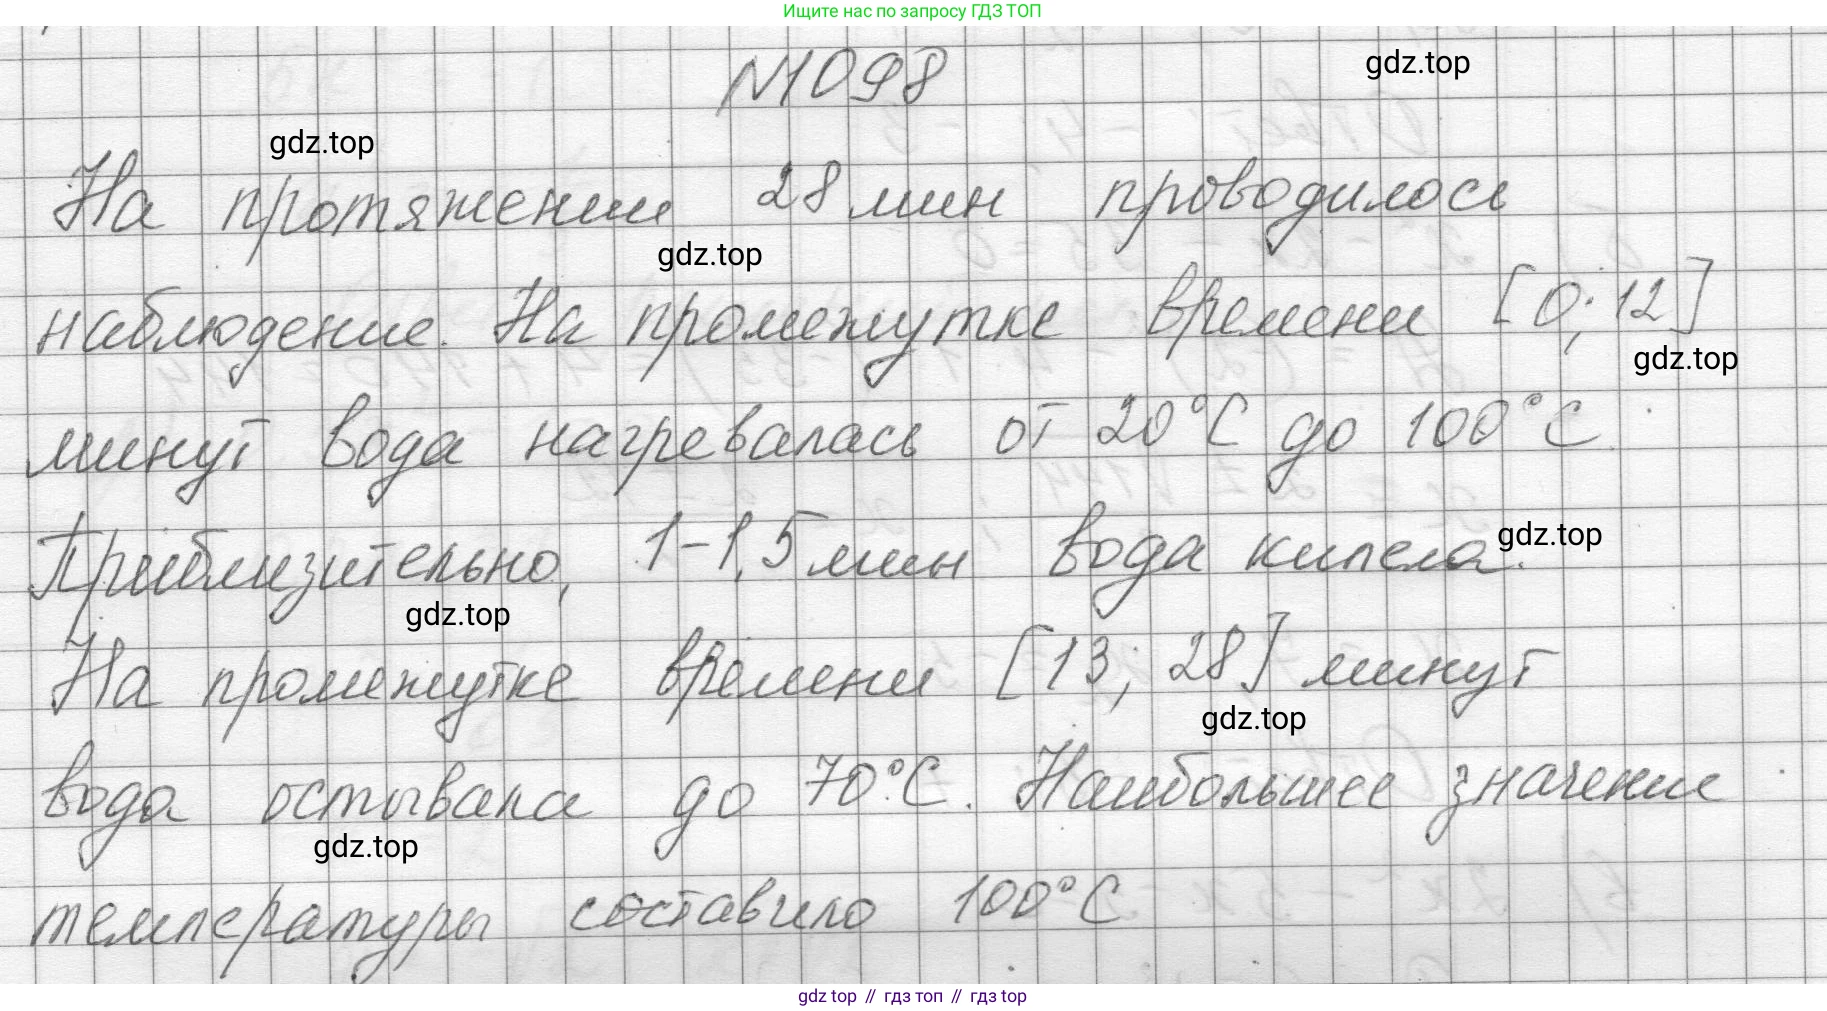 Ищите нас по запросу ГДЗ ТОП
N1098
gdz.top
gdz.top
На протяжении 28 мин проводилось
gdz.top
наблюдение. На промежутке времени [0; 12]
gdz.top
минут вода нагревалась от 20°С до 100°С.
Приблизительно, 1-1,5 мин вода кипела.
gdz.top
gdz.top
На промежутке времени [13; 28] минут
gdz.top
вода остывала до 70°С. Наибольшее значение
gdz.top
температуры составило 100°С
gdz top // гдз топ // gdz top